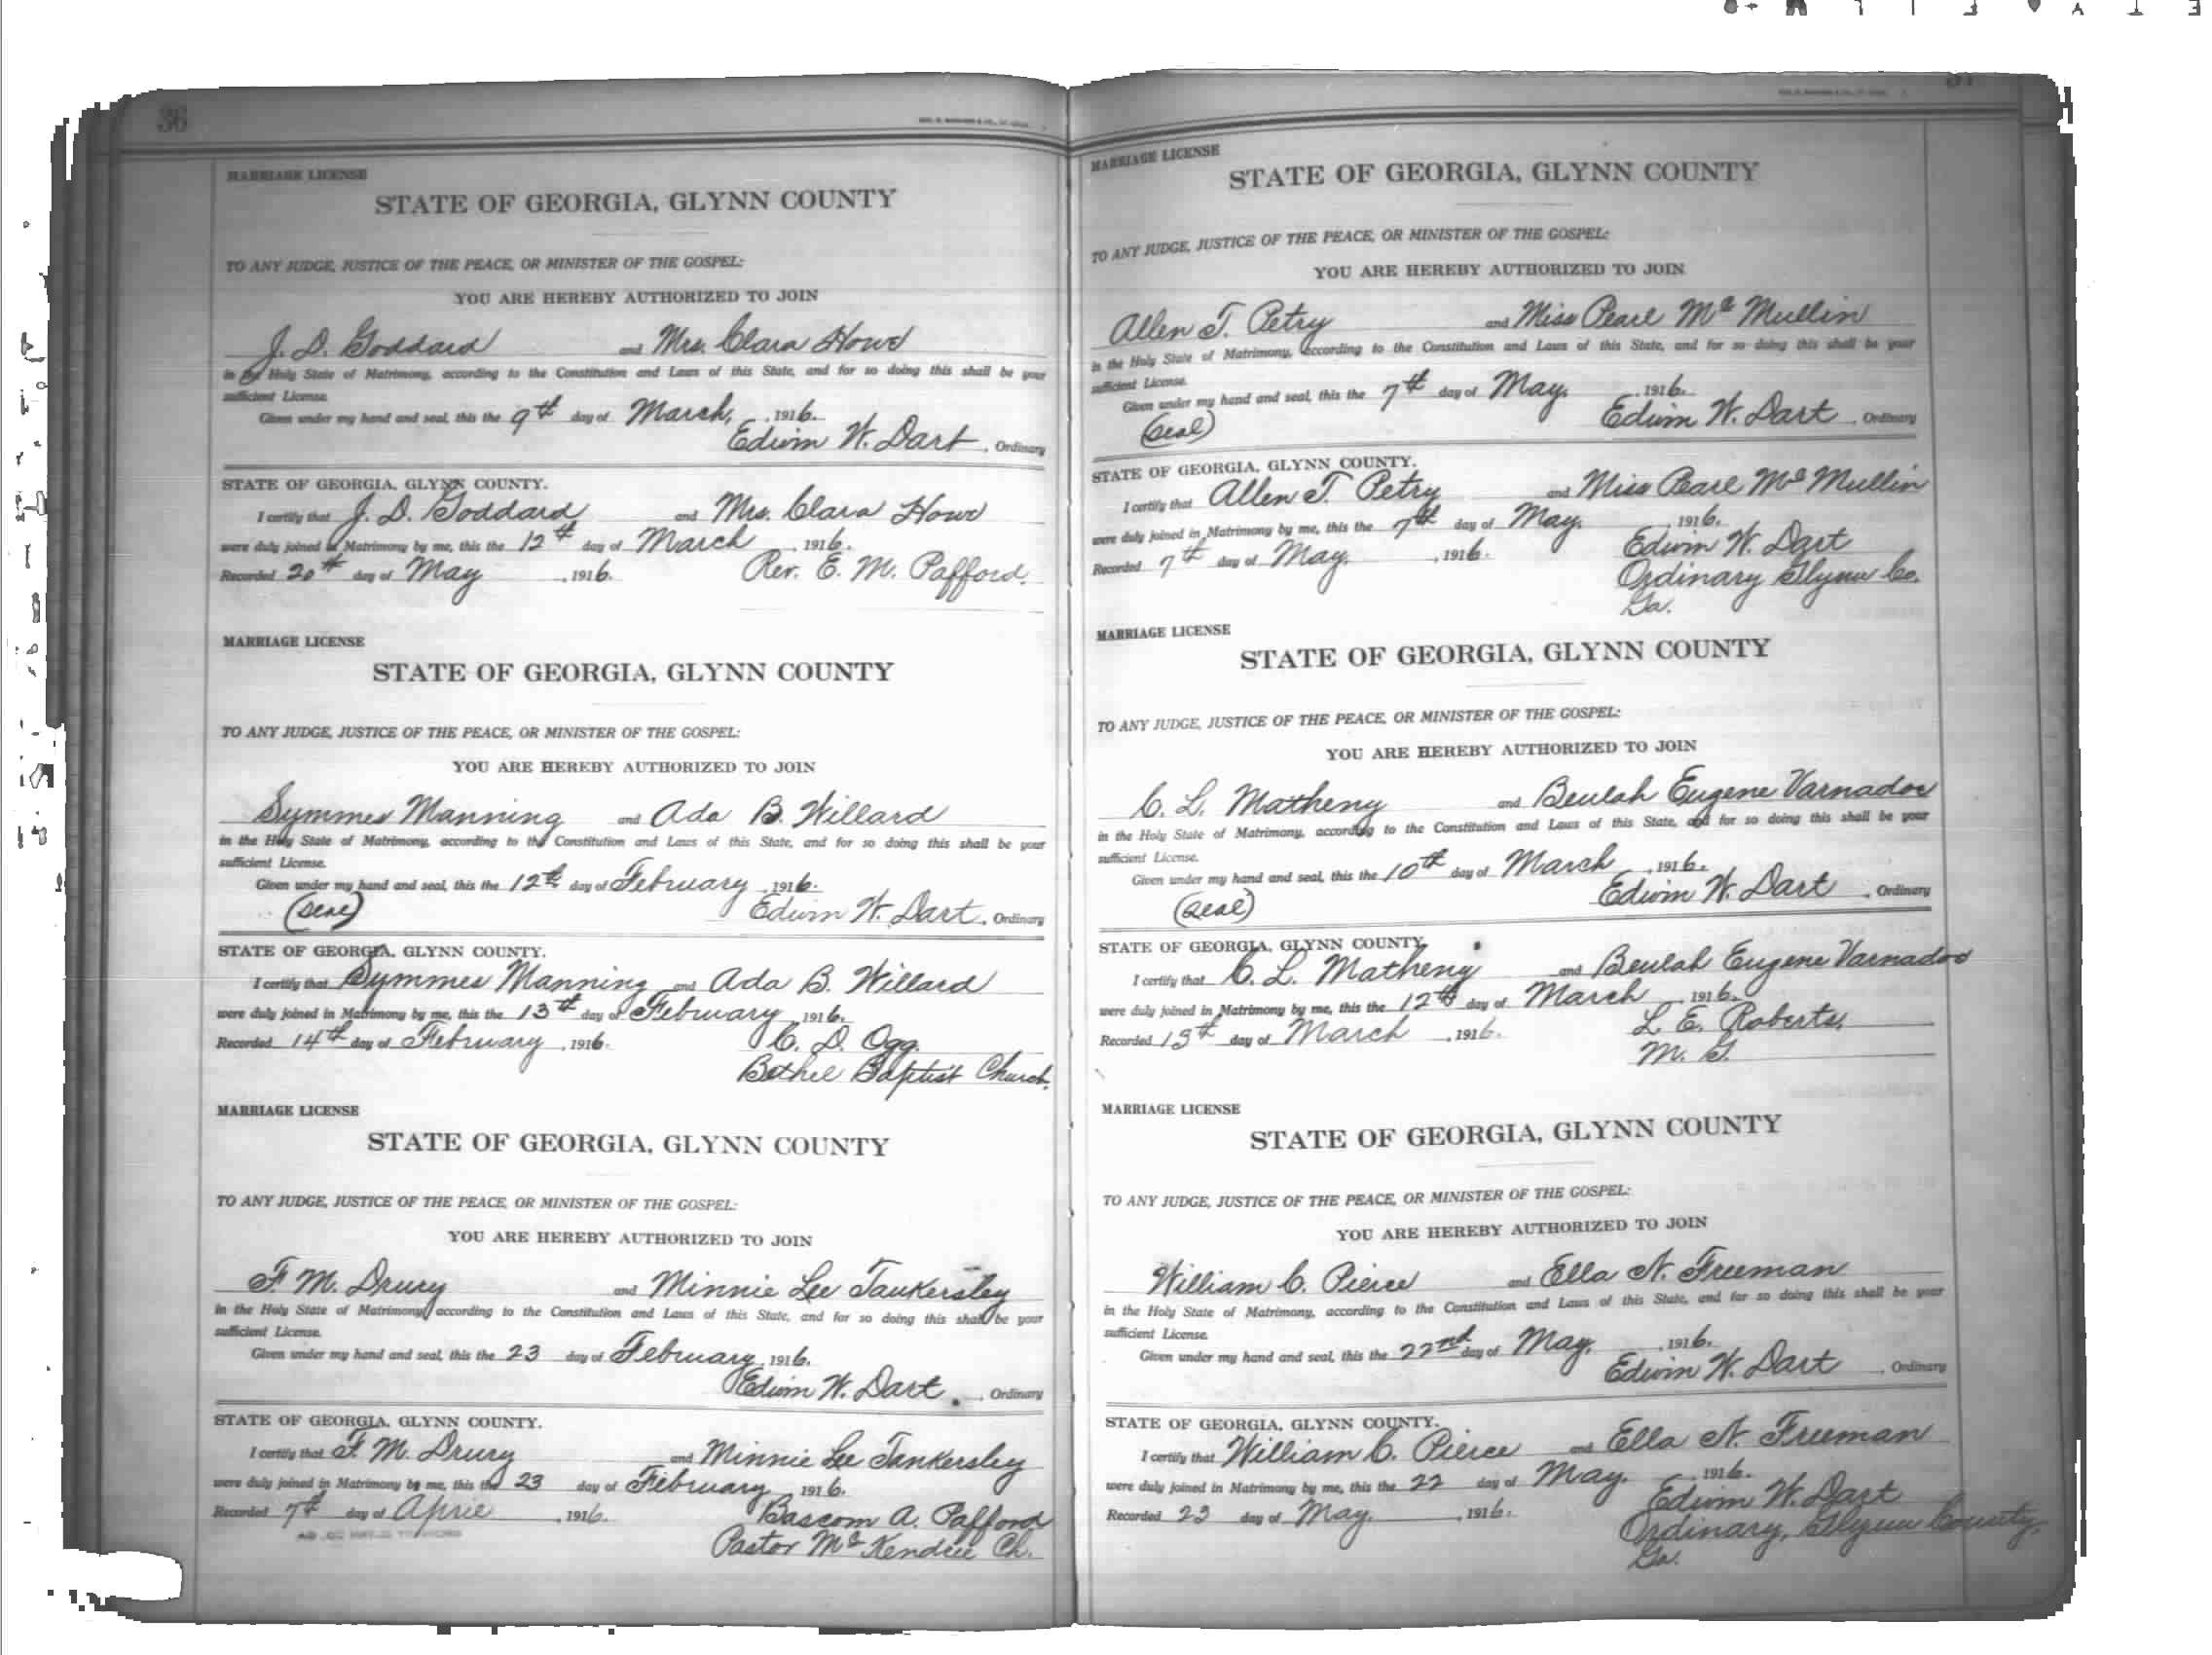 36
MARRIAGE LICENSE
STATE OF GEORGIA, GLYNN COUNTY
TO ANY JUDGE, JUSTICE OF THE PEACE, OR MINISTER OF THE GOSPEL:
YOU ARE HEREBY AUTHORIZED TO JOIN
J. D. Goddard and Mrs. Clara Howe
in the Holy State of Matrimony, according to the Constitution and Laws of this State, and for so doing this shall be your
sufficient License.
Given under my hand and seal, this the 9th day of March, 1916.
Edwin W. Dart, Ordinary
STATE OF GEORGIA, GLYNN COUNTY.
I certify that J. D. Goddard and Mrs. Clara Howe
were duly joined in Matrimony by me, this the 12th day of March, 1916.
Recorded 20th day of May, 1916. Rev. E. M. Pafford.
MARRIAGE LICENSE
STATE OF GEORGIA, GLYNN COUNTY
TO ANY JUDGE, JUSTICE OF THE PEACE, OR MINISTER OF THE GOSPEL:
YOU ARE HEREBY AUTHORIZED TO JOIN
Symmes Manning and Ada B. Willard
in the Holy State of Matrimony, according to the Constitution and Laws of this State, and for so doing this shall be your
sufficient License.
Given under my hand and seal, this the 12th day of February, 1916.
(Seal) Edwin W. Dart, Ordinary
STATE OF GEORGIA, GLYNN COUNTY.
I certify that Symmes Manning and Ada B. Willard
were duly joined in Matrimony by me, this the 13th day of February, 1916.
Recorded 14th day of February, 1916. C. D. Ogg.
Bethel Baptist Church.
MARRIAGE LICENSE
STATE OF GEORGIA, GLYNN COUNTY
TO ANY JUDGE, JUSTICE OF THE PEACE, OR MINISTER OF THE GOSPEL:
YOU ARE HEREBY AUTHORIZED TO JOIN
F. M. Drury and Minnie Lee Tankersley
in the Holy State of Matrimony, according to the Constitution and Laws of this State, and for so doing this shall be your
sufficient License.
Given under my hand and seal, this the 23 day of February, 1916.
Edwin W. Dart, Ordinary
STATE OF GEORGIA, GLYNN COUNTY.
I certify that F. M. Drury and Minnie Lee Tankersley
were duly joined in Matrimony by me, this the 23 day of February, 1916.
Recorded 7th day of April, 1916. Bascom A. Pafford
Pastor McKendree Ch.
MARRIAGE LICENSE
STATE OF GEORGIA, GLYNN COUNTY
TO ANY JUDGE, JUSTICE OF THE PEACE, OR MINISTER OF THE GOSPEL:
YOU ARE HEREBY AUTHORIZED TO JOIN
Allen T. Petry and Miss Pearl McMullin
in the Holy State of Matrimony, according to the Constitution and Laws of this State, and for so doing this shall be your
sufficient License.
Given under my hand and seal, this the 7th day of May. 1916.
(Seal) Edwin W. Dart, Ordinary
STATE OF GEORGIA, GLYNN COUNTY.
I certify that Allen T. Petry and Miss Pearl McMullin
were duly joined in Matrimony by me, this the 7th day of May. 1916.
Recorded 7th day of May. 1916. Edwin W. Dart
Ordinary Glynn Co.
Ga.
MARRIAGE LICENSE
STATE OF GEORGIA, GLYNN COUNTY
TO ANY JUDGE, JUSTICE OF THE PEACE, OR MINISTER OF THE GOSPEL:
YOU ARE HEREBY AUTHORIZED TO JOIN
C. L. Matheny and Beulah Eugene Varnadoe
in the Holy State of Matrimony, according to the Constitution and Laws of this State, and for so doing this shall be your
sufficient License.
Given under my hand and seal, this the 10th day of March, 1916.
(Seal) Edwin W. Dart, Ordinary
STATE OF GEORGIA, GLYNN COUNTY.
I certify that C. L. Matheny and Beulah Eugene Varnadoe
were duly joined in Matrimony by me, this the 12th day of March, 1916.
Recorded 13th day of March, 1916. L. E. Roberts,
M. G.
MARRIAGE LICENSE
STATE OF GEORGIA, GLYNN COUNTY
TO ANY JUDGE, JUSTICE OF THE PEACE, OR MINISTER OF THE GOSPEL:
YOU ARE HEREBY AUTHORIZED TO JOIN
William C. Pierce and Ella N. Freeman
in the Holy State of Matrimony, according to the Constitution and Laws of this State, and for so doing this shall be your
sufficient License.
Given under my hand and seal, this the 22nd day of May. 1916.
Edwin W. Dart, Ordinary
STATE OF GEORGIA, GLYNN COUNTY.
I certify that William C. Pierce and Ella N. Freeman
were duly joined in Matrimony by me, this the 22 day of May. 1916.
Recorded 23 day of May. 1916. Edwin W. Dart
Ordinary, Glynn County,
Ga.